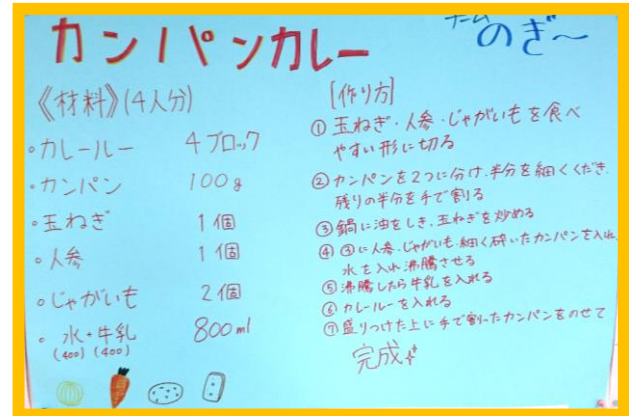 カンパンカレー
チーム
のぎ～
《材料》(4人分)
・カレールー 4ブロック
・カンパン 100g
・玉ねぎ 1個
・人参 1個
・じゃがいも 2個
・水+牛乳 800ml
(400) (400)
[作り方]
① 玉ねぎ・人参・じゃがいもを食べ
やすい形に切る
② カンパンを2つに分け、半分を細くくだき、
残りの半分を手で割る
③ 鍋に油をしき、玉ねぎを炒める
④ ③に人参、じゃがいも、細く砕いたカンパンを入れ、
水を入れ沸騰させる
⑤ 沸騰したら牛乳を入れる
⑥ カレールーを入れる
⑦ 盛りつけた上に手で割ったカンパンをのせて
完成